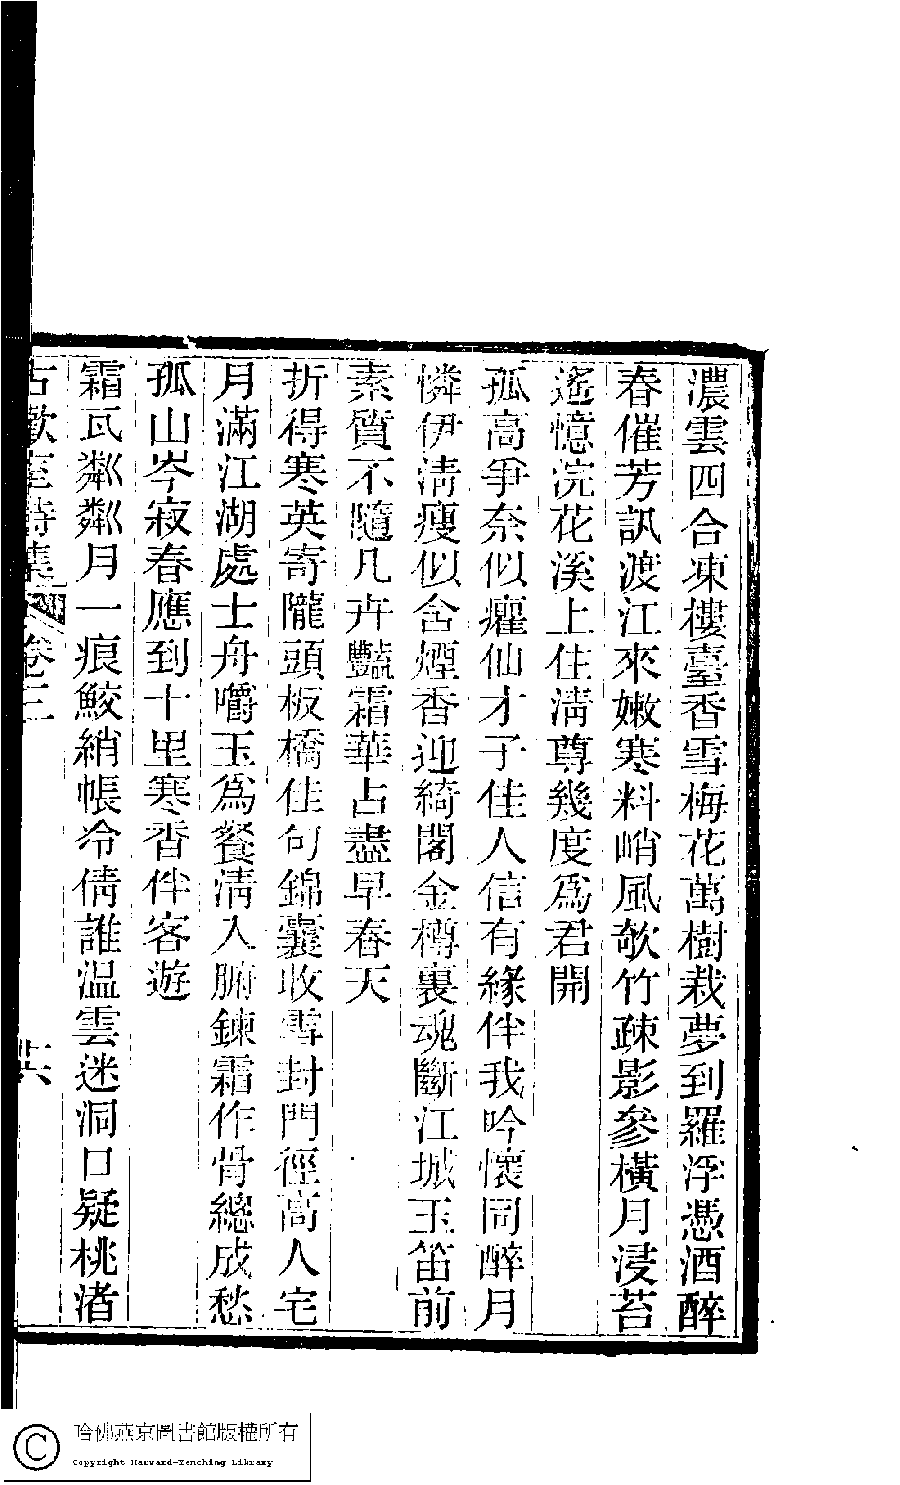 濃雲四合凍樓臺香雪梅花萬樹栽夢到羅浮憑酒醉
春催芳訊渡江來嫩寒料峭風欹竹疎影參橫月浸苔
遙憶浣花溪上住淸尊幾度爲君開
孤高爭奈似癯仙才子佳人信有緣伴我吟懷同醉月
憐伊淸瘦似含煙香迎綺閣金樽裏魂斷江城玉笛前
素質不隨凡卉豔霜華占盡早春天
折得寒英寄隴頭板橋佳句錦囊收雪封門徑高人宅
月滿江湖處士舟嚼玉爲餐淸入腑鍊霜作骨總成愁
孤山岑寂春應到十里寒香伴客遊
霜瓦粼粼月一痕鮫綃帳冷倩誰溫雲迷洞口疑桃渚
古歡室詩集 卷三 廿六
哈佛燕京圖書館版權所有
Copyright Harvard-Yenching Library